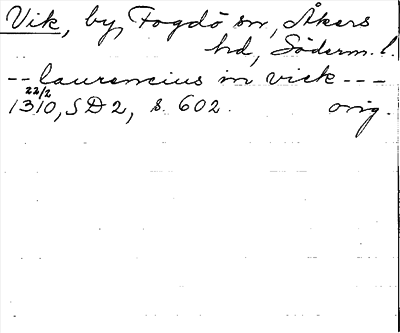 Vik, by, Fogdö sn, Åkers
hd, Söderm. l.
-- laurencius in vick ---
22/2
1310, SD 2, s. 602. orig.